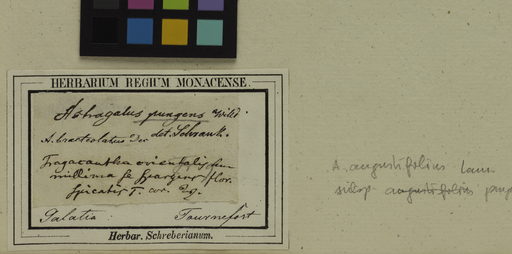 HERBARIUM REGIUM MONACENSE.
Astragalus pungens Willd.
A. bracteolatus Dec det. Schrank.
Tragacantha orientalis
Spicatis T. cor. 29.
Galatia: Tournefort
Herbar. Schreberianum.
A. angustifolius Lam.
subsp angustifolius pung